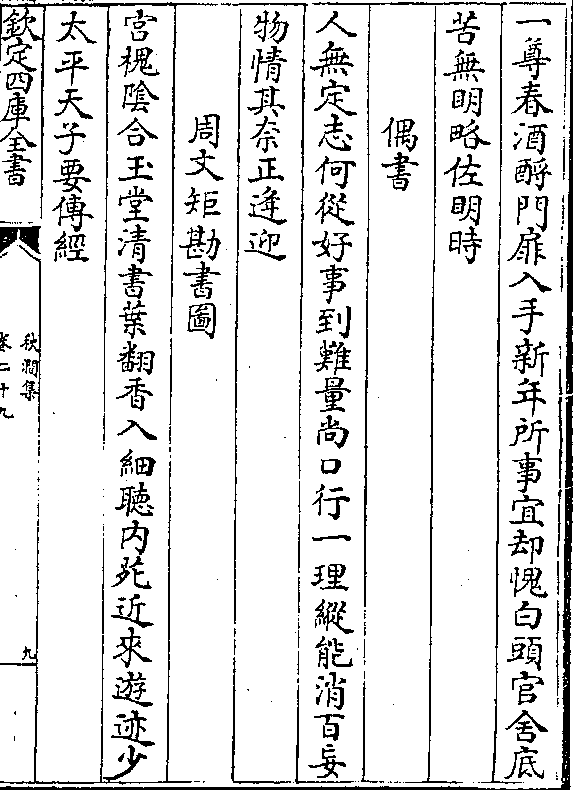 一尊春酒酹門扉入手新年所事宜却愧白頭官舍底
苦無明略佐明時
偶書
人無定志何從好事到難量尚口行一理縱能消百妄
物情其奈正逄迎
周文矩勘書圖
宫槐陰合玉堂清書葉翻香入細聴内苑近來遊迹少
太平天子要傳經
欽定四庫全書
秋澗集
卷二十九
九